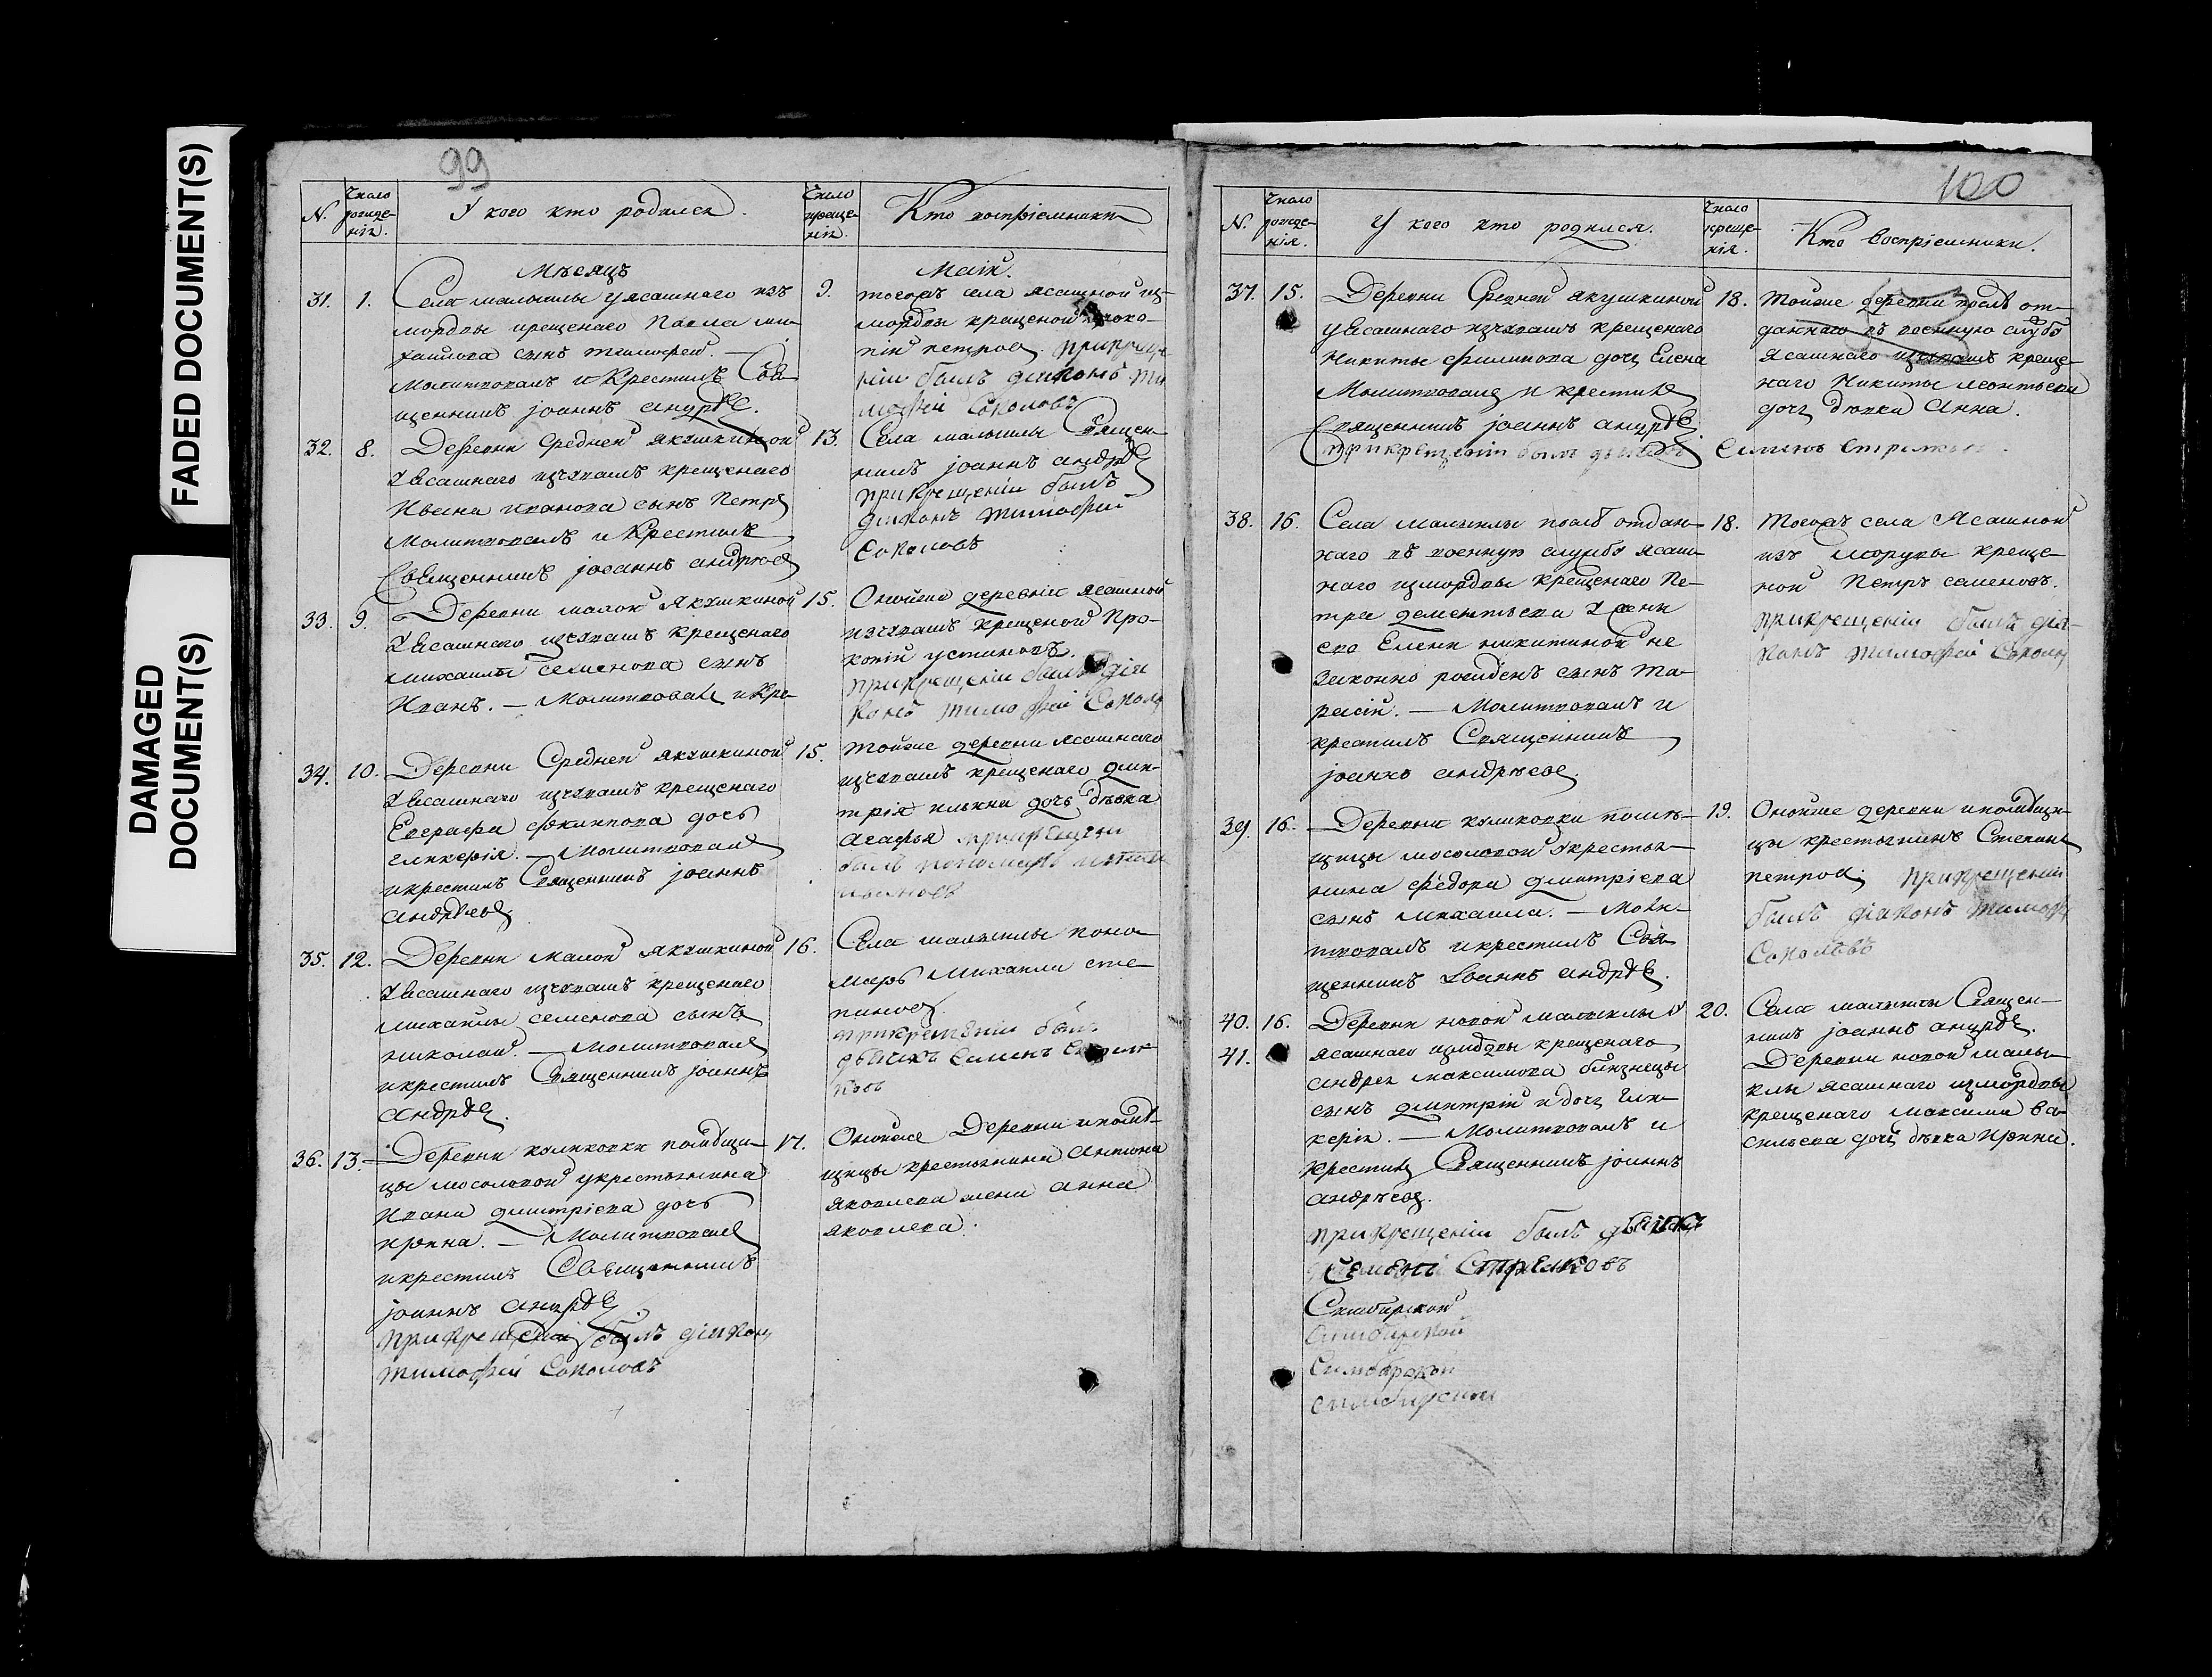 FADED DOCUMENT(S)
DAMAGED
DOCUMENT(S)
99
N.
Число рожде-нія.
У кого кто родился.
Число креще-нія.
Кто воспріемники
Мѣсяцъ
Маія.
31. 1.
Села малыклы у ясашнаго изъ
мордвы крещенаго Павла ми-
хайлова сынъ тимофей. —
Молитвовалъ и крестилъ Свя-
щенникъ іоаннъ андрѣе.
9.
тогожъ села ясашной из
мордвы крещеной проко-
пій петровъ. прикреще
ніи былъ діяконъ ти
мофій Соколовъ
32. 8.
Деревни Средней якушкиной
у ясашнаго изчувашъ крещенаго
Ивана иванова сынъ Петръ
Молитвовалъ и Крестилъ
Священникъ іоаннъ андрѣев
13.
Села малыклы Священ
никъ іоаннъ андрѣев
прикрещеніи былъ
діяконъ тимофій
Соколовъ
33. 9.
Деревни малой якушкиной
у ясашнаго изчувашъ крещенаго
михайлы семенова сынъ
Иванъ. — Молитвовал и кре-
15.
Оной же деревни ясашной
изчувашъ крещеной Про-
копій устиновъ.
прикрещеніи былъ дія
конъ тимофій Соколо
34. 10.
Деревни Средней якушкиной
у ясашнаго изчувашъ крещенаго
Евграфа филипова дочь
гликерія. — Молитвовал
и крестилъ Священникъ іоаннъ
андрѣевъ
15.
тойже деревни ясашнаго
изчувашъ крещенаго дми-
трія ильина дочь дѣвка
агафья прикрещеніи
былъ пономарь
35. 12.
Деревни малой якушкиной
у ясашнаго изчувашъ крещенаго
михайлы семенова сынъ
николай. — Молитвовал
и крестилъ Священникъ іоаннъ
андрѣе.
16.
Села малыклы поно
марь михаила сте
пановъ
прикрещеніи былъ
дьячекъ Семенъ Стрѣл
ковъ
36. 13.
Деревни куликовки помѣщи-
цы мосоловой у крестьянина
Ивана дмитріева дочь
ирина. — Молитвовал
и крестилъ Священникъ
іоаннъ андрѣе.
прикрещеніи былъ діяконъ
тимофій Соколовъ
17.
Оной же Деревни и помѣ-
щицы крестьянина антона
яковлева жена анна
яковлева.
100
N.
Число рожде-нія.
У кого кто родился.
Число креще-нія.
Кто воспріемники.
37. 15.
Деревни Средней якушкиной
у ясашнаго изчувашъ крещенаго
Никиты филипова дочь Елена
Молитвовал и крестил
Священникъ іоаннъ андрѣе
прикрещеніи былъ дьячекъ Семенъ Стрелков
18.
тойже деревни
даннаго въ военную служб
ясашнаго изчувашъ креще-
наго Никиты леонтьева
дочь дѣвка анна.
38. 16.
Села малыклы отдан-
наго въ военную служб ясаш-
наго изъ мордвы крещенаго Пе-
тра дементьева у жены
его Елены никитиной не
законно рожденъ сынъ та-
расій. — Молитвовалъ и
крестилъ Священникъ
іоаннъ андрѣевъ.
18.
тогожъ села Ясашной
изъ мордвы креще-
ной Петръ семеновъ.
прикрещеніи былъ дія-
конъ тимофій Соколов
39. 16.
Деревни куликовки помѣ-
щицы мосоловой у крестья-
нина федора дмитріева
сынъ михаила. — Моли-
твовалъ и крестилъ Свя-
щенникъ Іоаннъ андрѣе.
19.
Оной же деревни и помѣщи-
цы крестьянинъ Степанъ
петровъ прикрещеніи
былъ діяконъ тимофі
Соколовъ
40. 16.
41.
Деревни новой малыклы у
ясашнаго изъ мордвы крещенаго
андрея максимова близнецы
сынъ дмитрій и дочь гли-
керія. — Молитвовалъ и
крестилъ Священникъ іоаннъ
андрѣевъ.
прикрещеніи былъ дьячекъ
Семенъ Стрелковъ
Симбирской
Симбирской
Симбирской
симбирской
20.
Села малыклы Священ-
никъ іоаннъ андрѣе.
Деревни новой малы-
клы ясашнаго изъ мордвы
крещенаго максима ва-
сильева дочь дѣвка ирина.